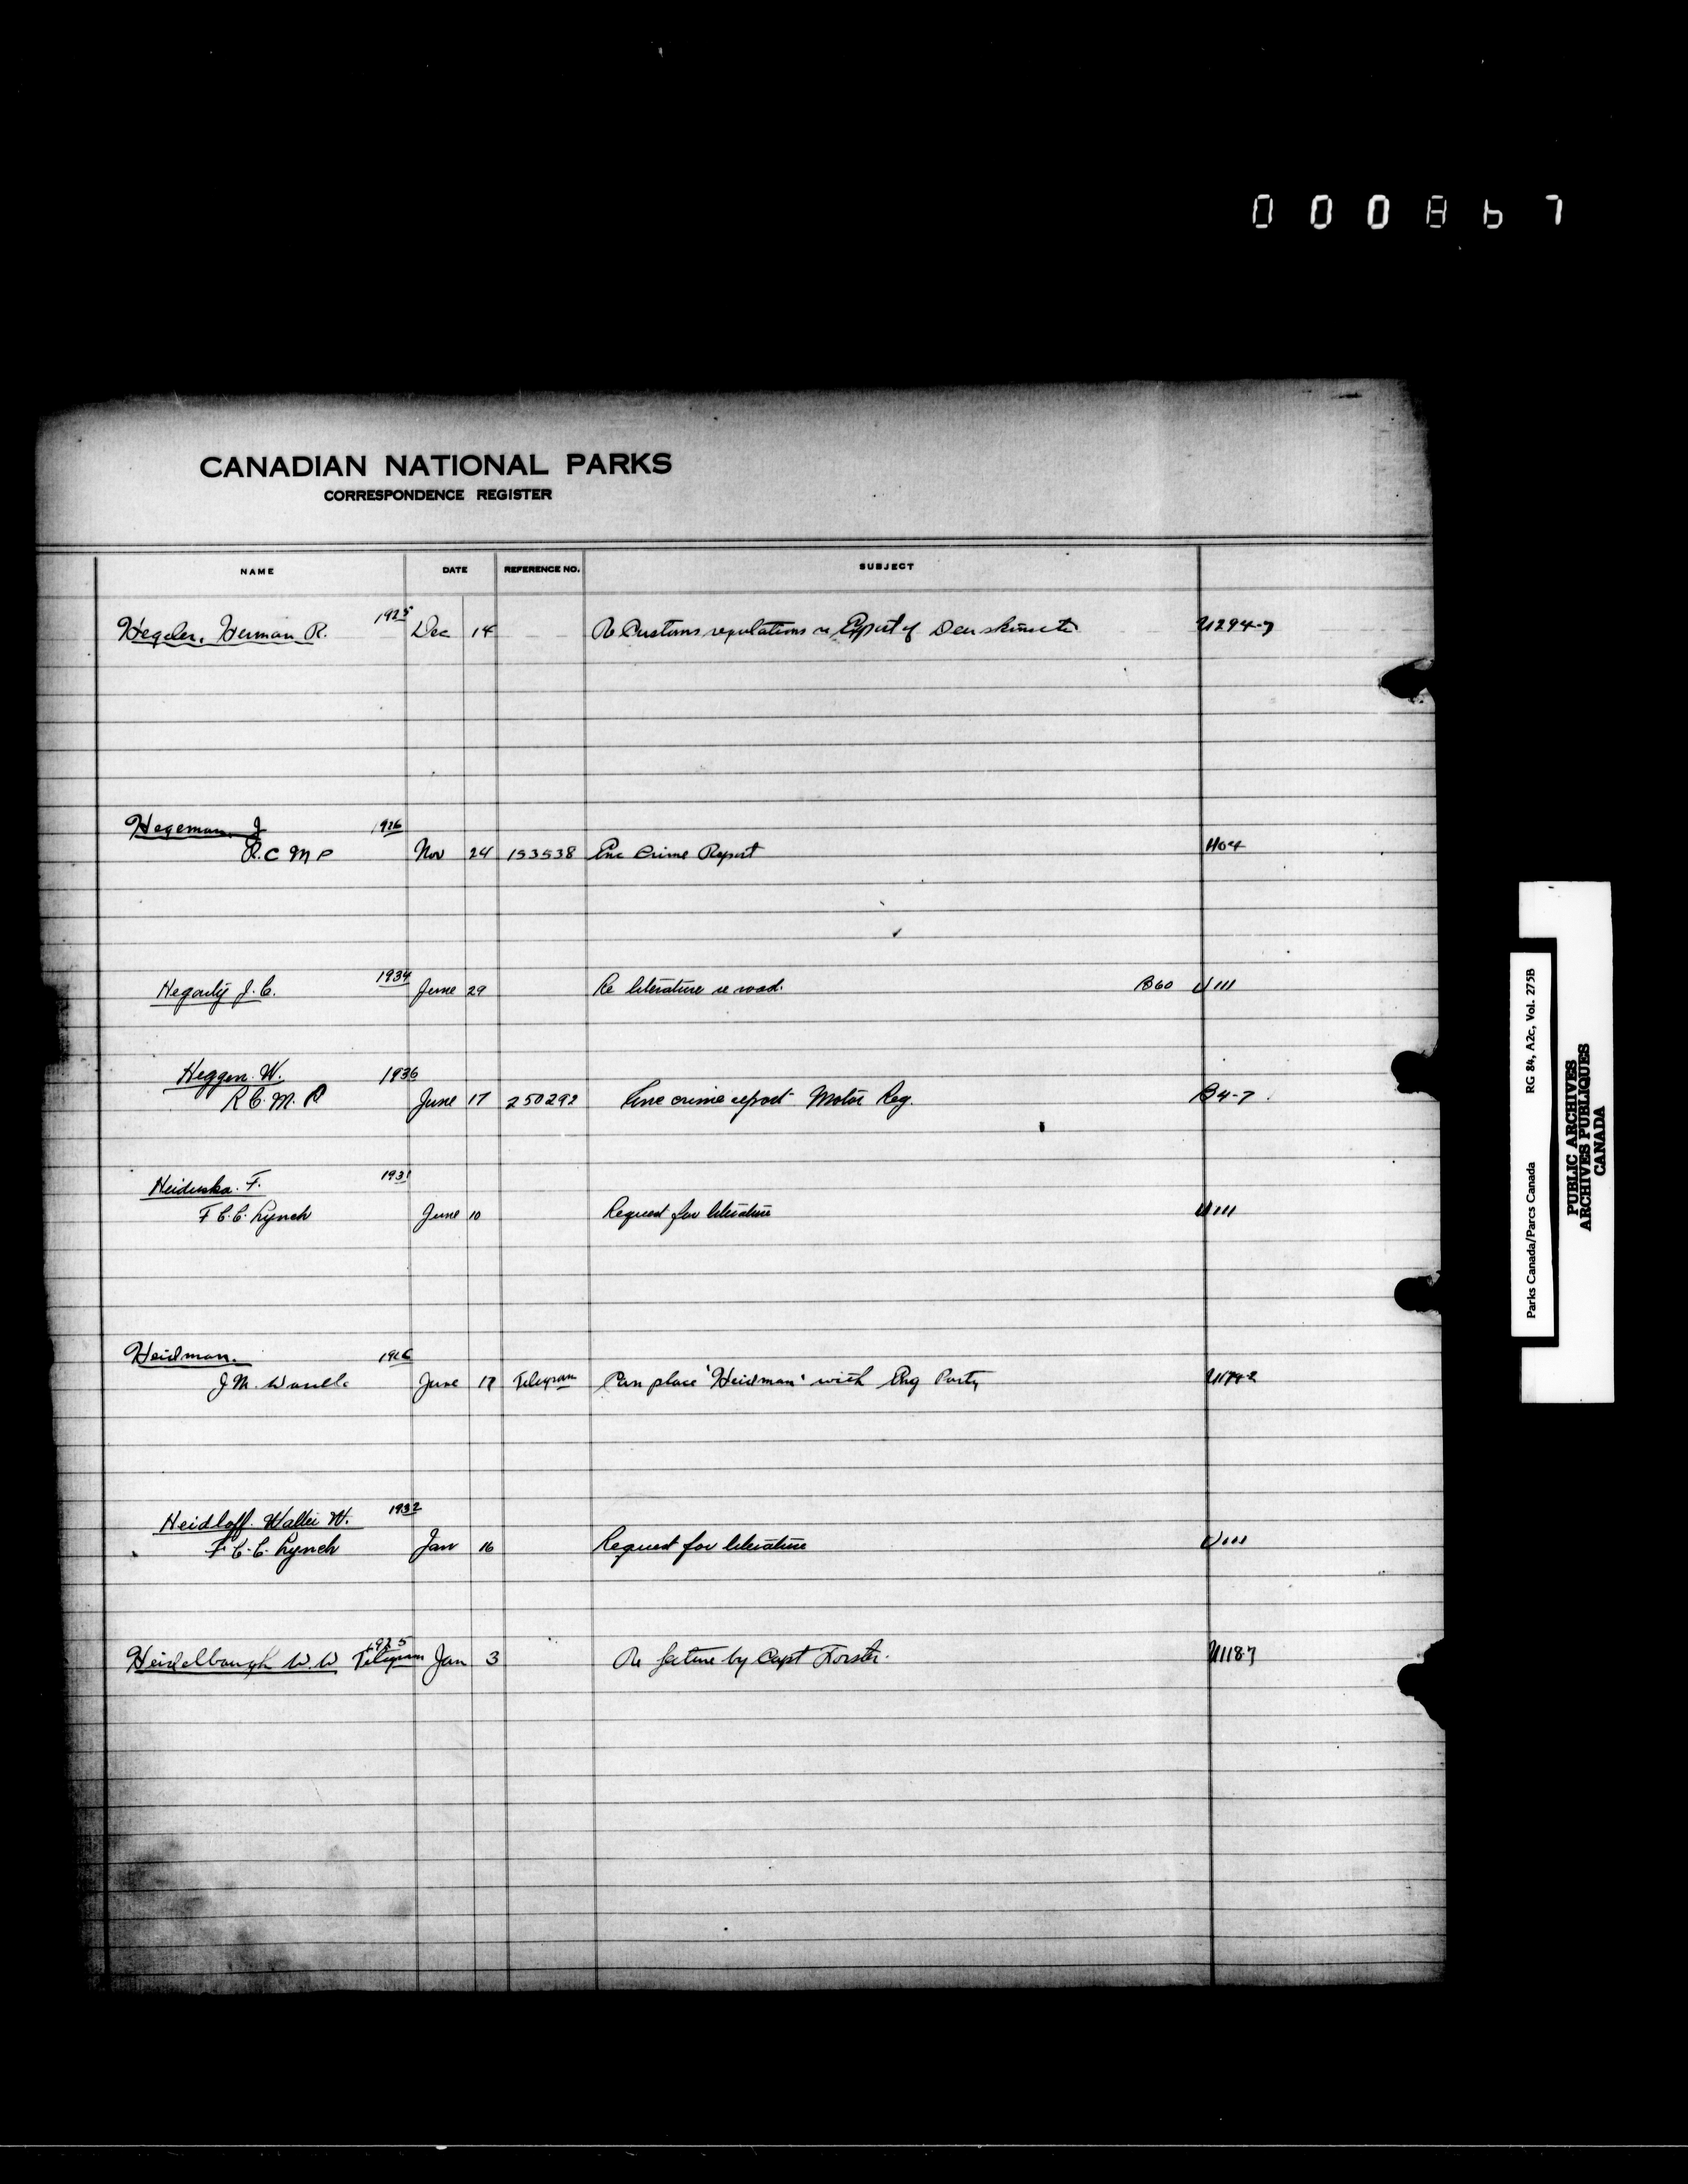 000867
CANADIAN NATIONAL PARKS
CORRESPONDENCE REGISTER
NAME DATE REFERENCE NO. SUBJECT
Hegeler, Herman R. 1925 Dec 14 Re Customs regulations re Export of Deer skins etc U294-7
Hegeman J 1926
R.C.M.P Nov 24 153538 Enc Crime Report H04
Hegarty J. C. 1934 June 29 Re literature re road. B60 U111
Heggen W. 1936
R.C.M.P June 17 250292 Enc crime report Motor Reg. B4-7
F.C.C. Lynch 1931 June 10 Request for literature U111
Heidman. 1926
J.M. Wardle June 17 Telegram Can place 'Heidman' with Eng Party
Heidloff. Walter W. 1932
F.C.C. Lynch Jan 16 Request for literature U111
Heidelbaugh W.W 1925 Telegram Jan 3 Re lecture by Capt Forster. U118-7
Parks Canada/Parcs Canada RG 84, A2c, Vol. 275B
PUBLIC ARCHIVES
ARCHIVES PUBLIQUES
CANADA